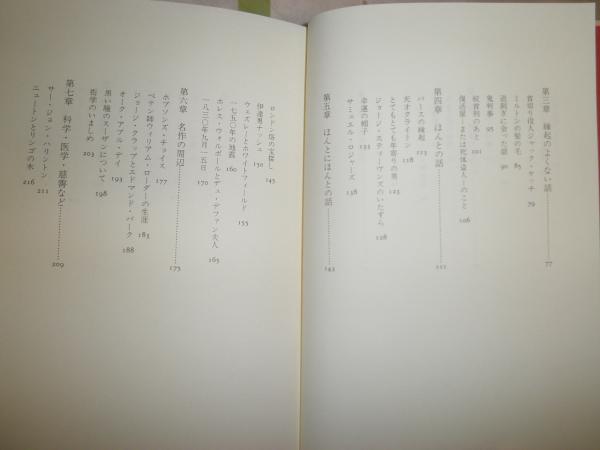 第三章 縁起のよくない話 77
首切り役人ジャック・ケッチ 79
ミルトンの髪の毛 85
追剝ぎに会った話 90
鬼判事
絞首刑のあと 101
復活屋―または死体盗人―のこと 106
第四章 ほんとの話 111
バースの縁起 113
天才クライトン
とてもとても年寄りの男 123
ジョージ・スティーヴンズのいたずら 128
幸運の帽子
サミュエル・ロジャーズ 138
第五章 ほんとにほんとの話 143
ロンドン塔の宝探し 145
伊達男ナッシュ 150
ウェズレーとホワイトフィールド 155
一七五〇年の地震 160
ホレス・ウォルポールとデュ・デファン夫人 165
一八三〇年九月一五日 170
第六章 名作の周辺 175
ホブソンズ・チョイス 177
ペテン師ウィリアム・ローダーの生涯 183
ジョージ・クラッブとエドマンド・バーク 188
オーク・アプル・デイ 193
黒い瞳のスーザンについて 198
衒学のいましめ 203
第七章 科学・医学・慈善など 209
サー・ジョン・ハリントン 211
ニュートンとリンゴの木 216